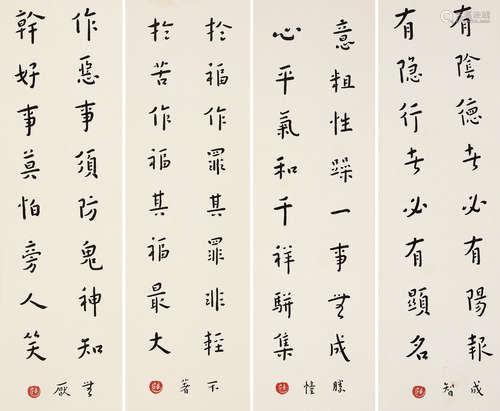 有陰德者必有陽報
有隐行者必有顯名
成智
意粗性躁一事無成
心平氣和千祥駢集
勝幢
於福作罪其罪非輕
於苦作福其福最大
不著
作惡事須防鬼神知
幹好事莫怕旁人笑
無厭